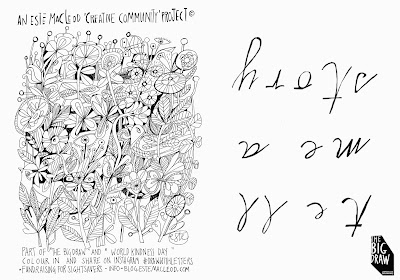 AN ESTÉ MACLEOD 'CREATIVE COMMUNITY' PROJECT ©
PART OF "THE BIGDRAW" AND "WORLD KINDNESS DAY"
COLOUR IN AND SHARE ON INSTAGRAM #DRAWWITHLETTERS
•FUNDRAISING FOR SIGHTSAVERS - INFO-BLOG.ESTEMACLEOD.COM
tell
me a
story
THE
BIG
DRAW